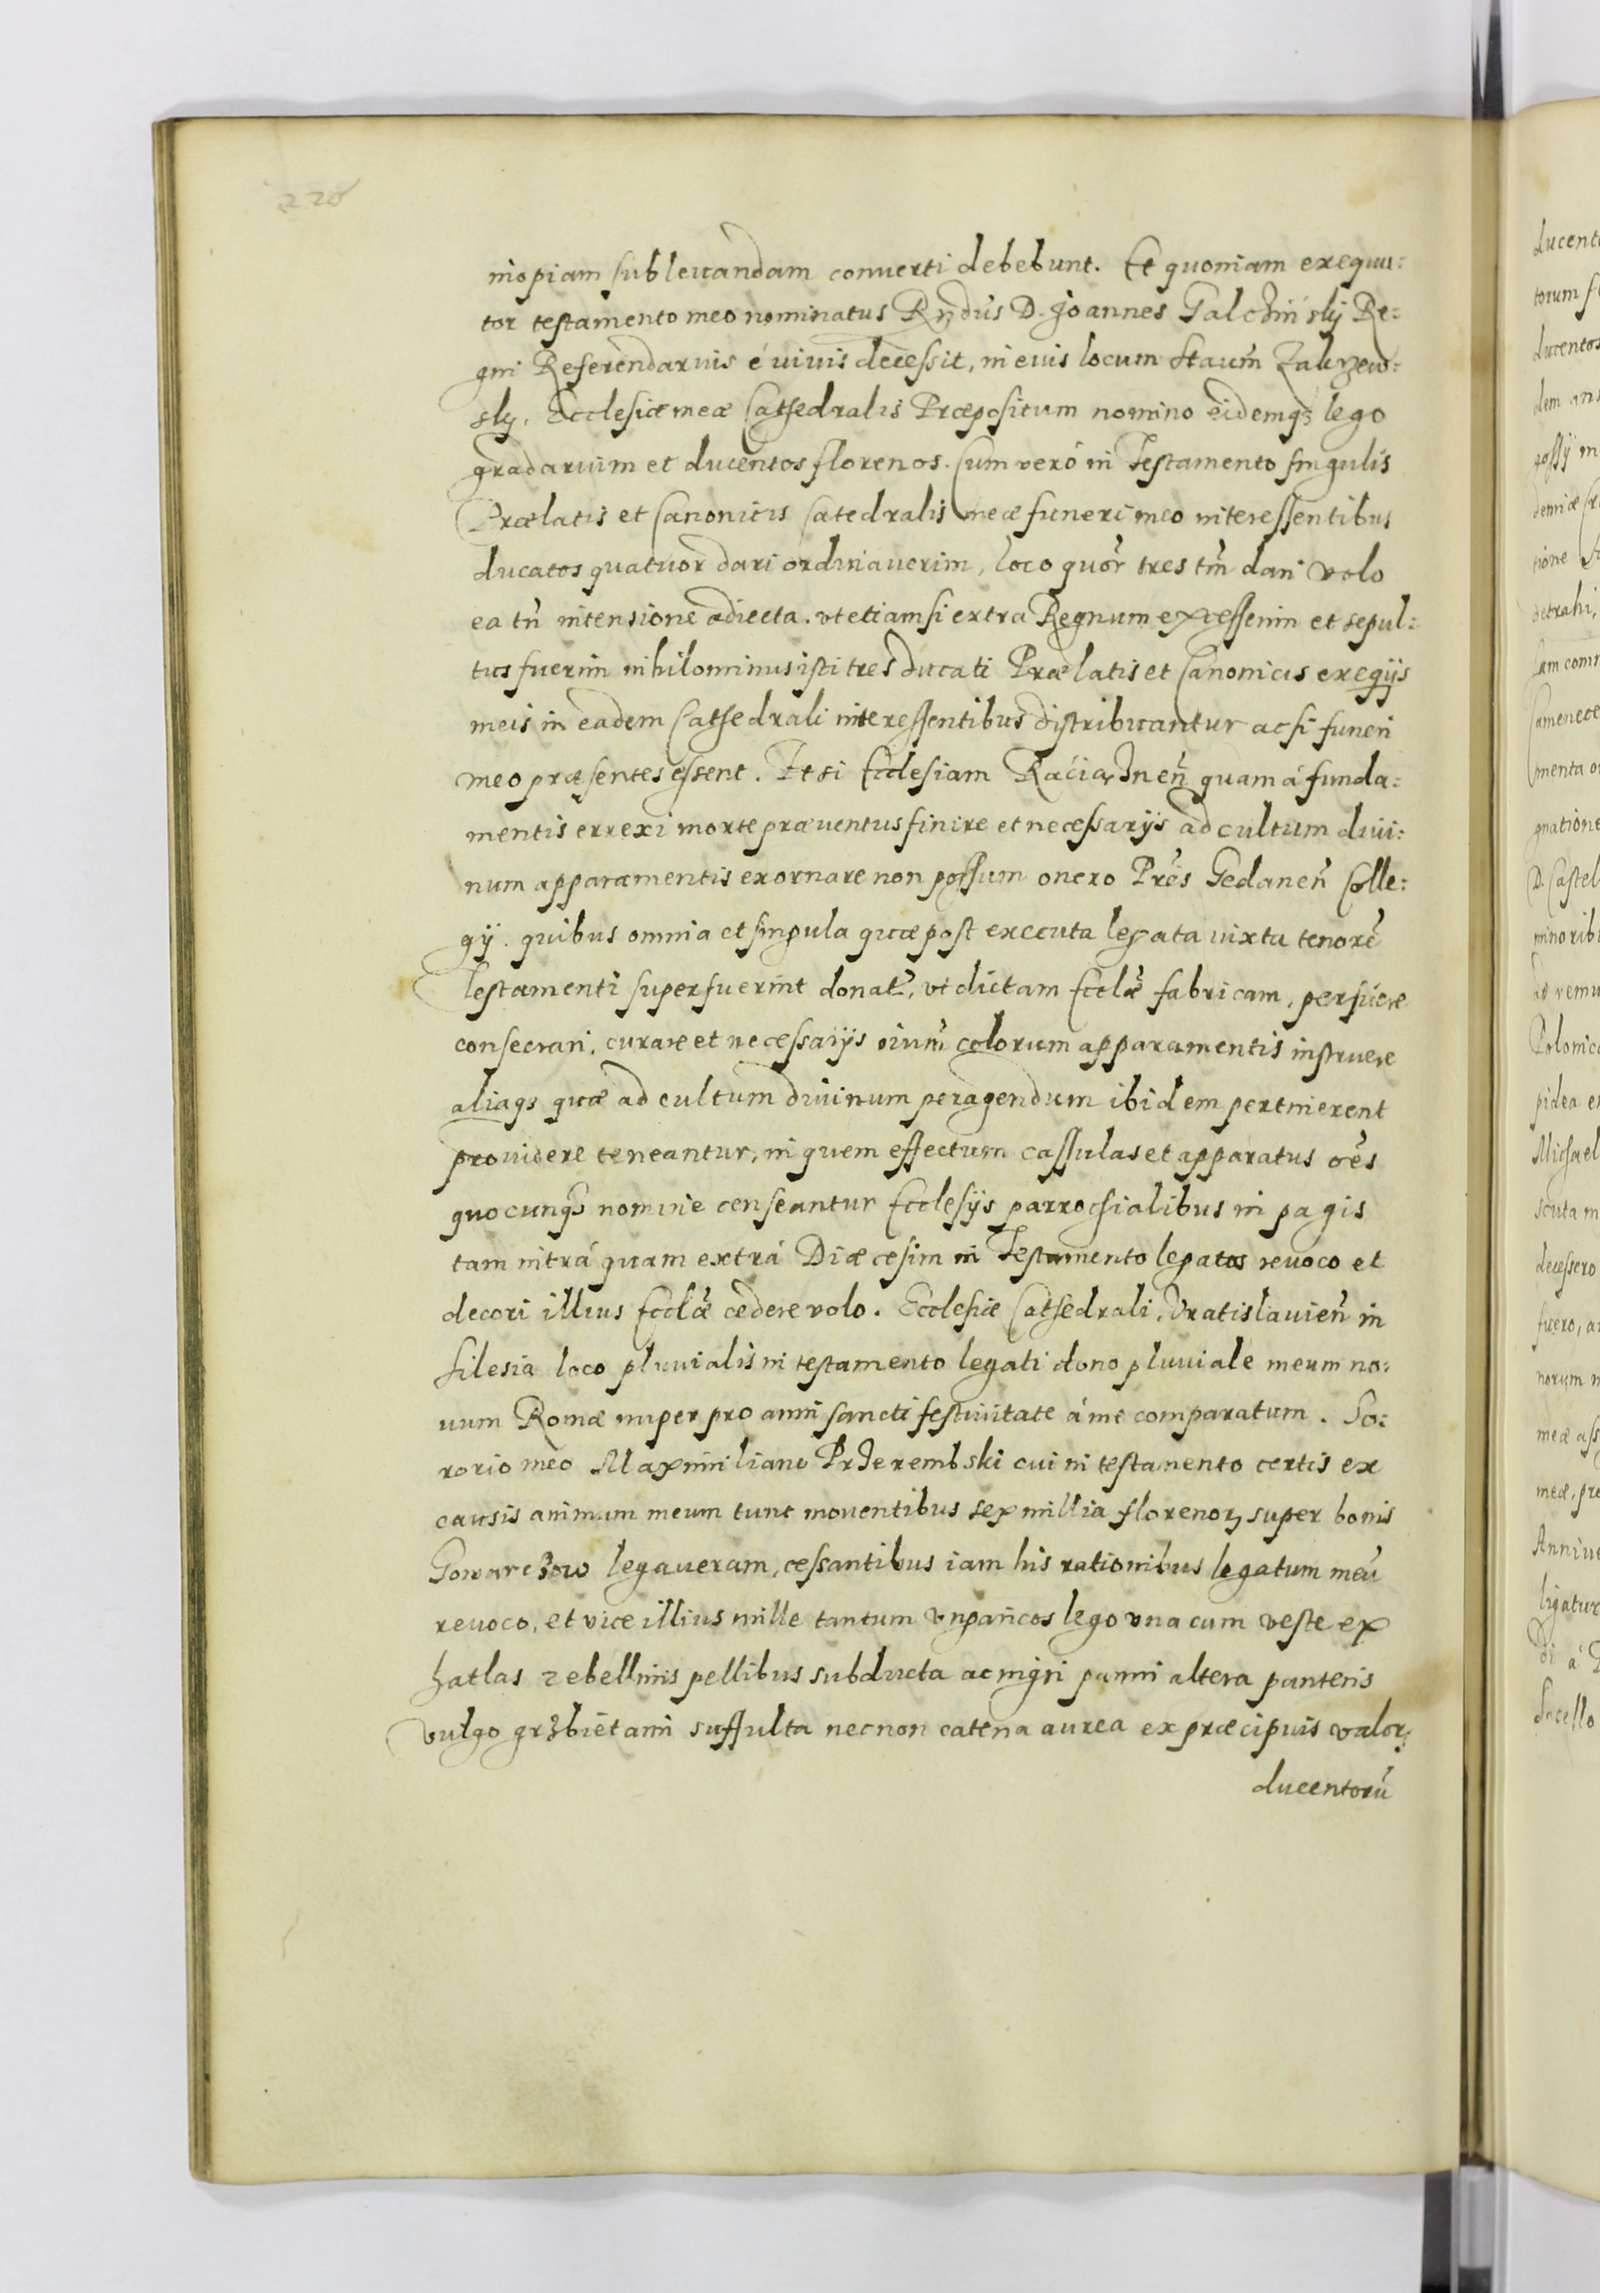 220
inopiam subleuandam conuerti debebunt. Et quoniam exequu:
tor testamento meo nominatus Rndus D. Joannes Galchinsky Re:
gni Referendarius é viuis decessit, in eius locum Staum Zaluzew:
sky, Ecclesiæ meæ Cathedralis Præpositum nomino eidemq3 lego
gradarium et ducentos florenos. Cum veró in Testamento singulis
Prælatis et Canonicis Catedralis meæ funeri meo interessentibus
ducatos quatuor dari ordinauerim, loco quor tres tm dari volo
ea tn intensione adiecta. vt etiam si extra Regnum excesserim et sepul:
tus fuerim nihilominus isti tres ducati Prælatis et Canonicis exequijs
meis in eadem Cathedrali interessentibus distribuantur ac si funeri
meo præsentes essent. Et si Ecclesiam Raciaznen quam á funda:
mentis errexi morte præuentus finire et necessarijs ad cultum diui:
num apparamentis exornare non possum onero Pres Gedanen Colle:
gij. quibus omnia et singula quæ post executa legata iuxta tenore
testamenti superfuerint donat, vt dictam Ecclæ fabricam, perficere
consecrari, curare et necessarijs oium colorum apparamentis instruere
aliaq3 quæ ad cultum diuinum peragendum ibidem pertinerent
prouidere teneantur, in quem effectum cassulas et apparatus oes
quocunq3 nomine censeantur Ecclesijs parrochialibus in pagis
tam intrá quam extrá Diæcesim in Testamento legatos reuoco et
decori illius Ecclæ cedere volo. Ecclesiæ Cathedrali, Vratislauien in
Silesia loco pluuialis in testamento legati dono pluuiale meum no:
uum Romæ nuper pro anni sancti festiuitate á me comparatum. So:
rorio meo Maximiliano Przerembski cui in testamento certis ex
causis animum meum tunc mouentibus sex millia florenor super bonis
Gowarczow legaueram, cessantibus iam his rationibus legatum meu
reuoco, et vice illius mille tantum vngaricos lego vna cum veste ex
hatlas zebellinis pellibus subducta ac nigri panni altera panteris
vulgo grzbietami suffulta necnon catena aurea ex præcipuis valor
ducentoru